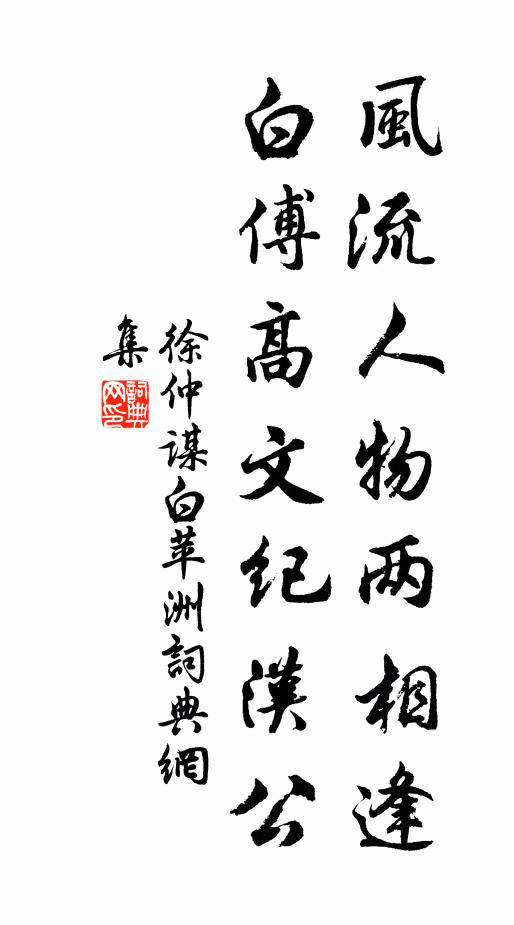 風流人物两相逢
白傅高文紀漢公
徐仲謀白苹洲詞典網
集
詞典
网印